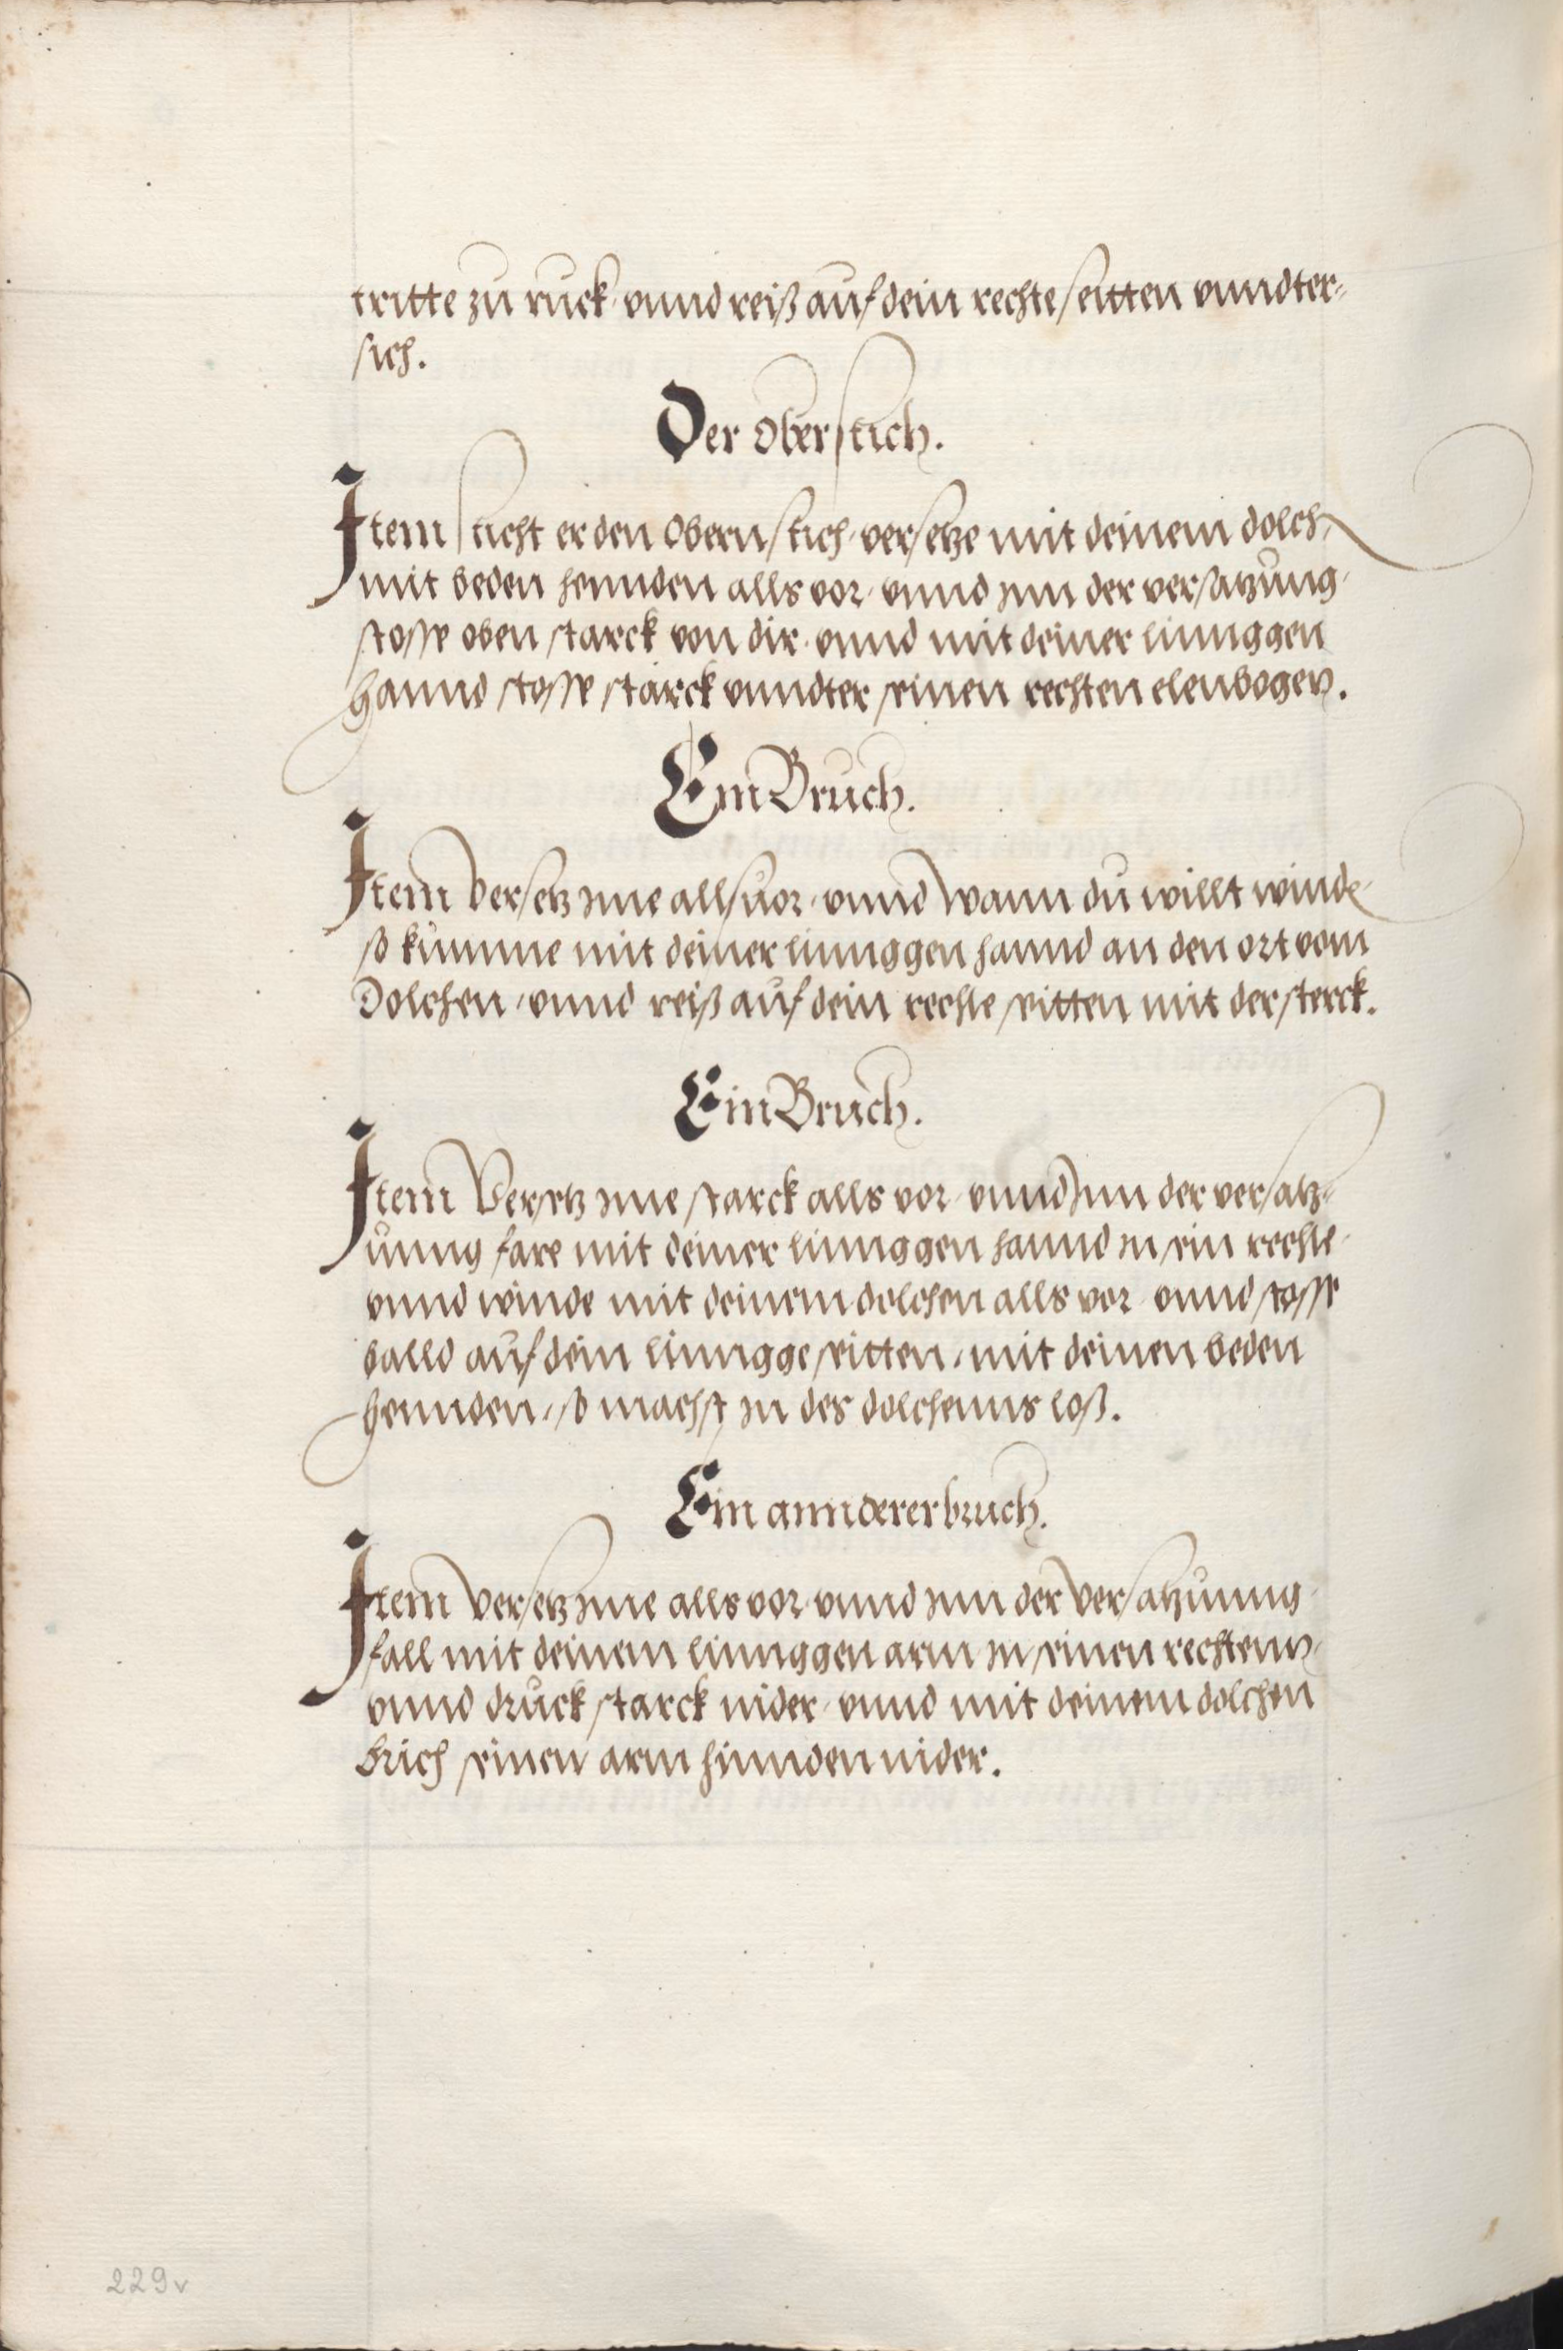 tritte zu ruck · vnnd reiß auf dein rechte seitten vnndter=
sich.
Der Oberstich.
Item sticht er den Obern stich · versetze mit deinem dolch
mit beden hennden alls vor · vnnd jnn der versatzung ·
stosse oben starck von dir · vnnd mit deiner linnggen
Hannd stosse starck vnndter seinen rechten elenbogen.
Ein Bruch.
Item Versetz jnne alls uor · vnnd wann du willt winde ·
so kumme mit deiner linnggen hannd an den ort vom
Dolchen · vnnd reiß auf dein rechte seitten mit der sterck.
Ein Bruch.
Item Versetz jnne starck alls vor · vnnd jnn der versatz=
unng fare mit deiner linnggen hannd jn sein rechte ·
vnnd winde mit deinem dolchen alls vor · vnnd stosse
balld auf dein linngge seitten · mit deinen beden
Hennden · so machst jn des dolchenns loß.
Ein annderer bruch.
Item versetz jnne alls vor · vnnd jnn der Versatzunng ·
fall mit deinem linnggen arm jn seinen rechtenn ·
vnnd druck starck nider · vnnd mit deinem dolchen
Brich seinen arm hinnden nider.
229v